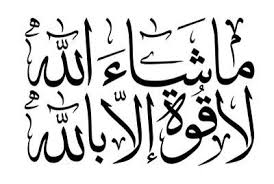 ما شاءَ اللّٰه
لا قُوّة إلاّ باللّٰه